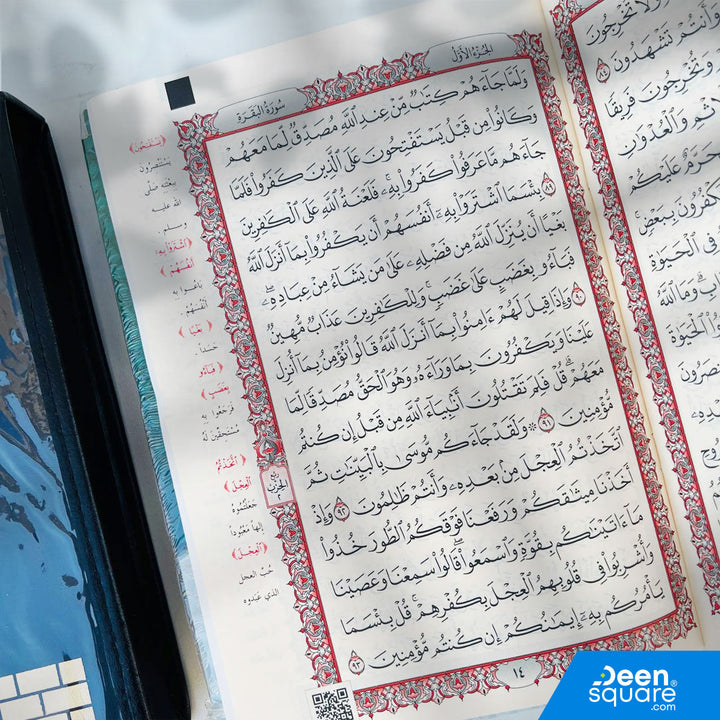 الجُزْءُ الأَوَّلُ
سُورَةُ البَقَرَةِ
وَلَمَّا جَآءَهُمْ كِتَٰبٌ مِّنْ عِندِ ٱللَّهِ مُصَدِّقٌ لِّمَا مَعَهُمْ
وَكَانُوا۟ مِن قَبْلُ يَسْتَفْتِحُونَ عَلَى ٱلَّذِينَ كَفَرُوا۟ فَلَمَّا
جَآءَهُم مَّا عَرَفُوا۟ كَفَرُوا۟ بِهِۦ ۚ فَلَعْنَةُ ٱللَّهِ عَلَى ٱلْكَٰفِرِينَ ٨٩
بِئْسَمَا ٱشْتَرَوْا۟ بِهِۦٓ أَنفُسَهُمْ أَن يَكْفُرُوا۟ بِمَآ أَنزَلَ ٱللَّهُ
بَغْيًا أَن يُنَزِّلَ ٱللَّهُ مِن فَضْلِهِۦ عَلَىٰ مَن يَشَآءُ مِنْ عِبَادِهِۦ ۖ
فَبَآءُو بِغَضَبٍ عَلَىٰ غَضَبٍ ۚ وَلِلْكَٰفِرِينَ عَذَابٌ مُّهِينٌ
٩٠ وَإِذَا قِيلَ لَهُمْ ءَامِنُوا۟ بِمَآ أَنزَلَ ٱللَّهُ قَالُوا۟ نُؤْمِنُ بِمَآ أُنزِلَ
عَلَيْنَا وَيَكْفُرُونَ بِمَا وَرَآءَهُۥ وَهُوَ ٱلْحَقُّ مُصَدِّقًا لِّمَا
مَعَهُمْ ۗ قُلْ فَلِمَ تَقْتُلُونَ أَنۢبِيَآءَ ٱللَّهِ مِن قَبْلُ إِن كُنتُم
مُّؤْمِنِينَ ٩١ ۞ وَلَقَدْ جَآءَكُم مُّوسَىٰ بِٱلْبَيِّنَٰتِ ثُمَّ
ٱتَّخَذْتُمُ ٱلْعِجْلَ مِنۢ بَعْدِهِۦ وَأَنتُمْ ظَٰلِمُونَ ٩٢ وَإِذْ
أَخَذْنَا مِيثَٰقَكُمْ وَرَفَعْنَا فَوْقَكُمُ ٱلطُّورَ خُذُوا۟
مَآ ءَاتَيْنَٰكُم بِقُوَّةٍ وَٱسْمَعُوا۟ ۖ قَالُوا۟ سَمِعْنَا وَعَصَيْنَا
وَأُشْرِبُوا۟ فِى قُلُوبِهِمُ ٱلْعِجْلَ بِكُفْرِهِمْ ۚ قُلْ بِئْسَمَا
يَأْمُرُكُم بِهِۦٓ إِيمَٰنُكُمْ إِن كُنتُم مُّؤْمِنِينَ ٩٣
١٤
﴿يَسْتَفْتِحُونَ﴾
يَسْتَنْصِرُونَ
بِبَعْثَتِهِ صلَّى
الله عليه
وسلم.
﴿ٱشْتَرَوْا۟ بِهِۦٓ
أَنفُسَهُمْ﴾
بَاعُوا بِهِ
أَنْفُسَهُمْ
﴿بَغْيًا﴾
حَسَدًا.
﴿فَبَآءُو
بِغَضَبٍ﴾
فَرَجَعُوا بِهِ
مُسْتَحِقِّينَ لَهُ
﴿ٱتَّخَذْتُمُ
ٱلْعِجْلَ﴾
جَعَلْتُمُوهُ
إِلَهًا مَعْبُودًا
﴿ٱلْعِجْلَ﴾
حُبَّ العجل
الذي عَبَدُوه
رُبْع
الحِزْب
٢
وَأَنتُمْ تَشْهَدُونَ ٨٤
وَتُخْرِجُونَ فَرِيقًا
وَٱلْعُدْوَٰنِ
عَلَيْكُمْ
بِبَعْضٍ
فِى ٱلْحَيَوٰةِ
وَمَا ٱللَّهُ
ٱلْحَيَوٰةَ
Deen
square®
.com